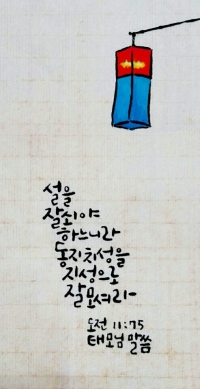 설을
잘쇠야
하느니라
동지치성을
지성으로
잘모셔라
도전 11:75
태모님 말씀